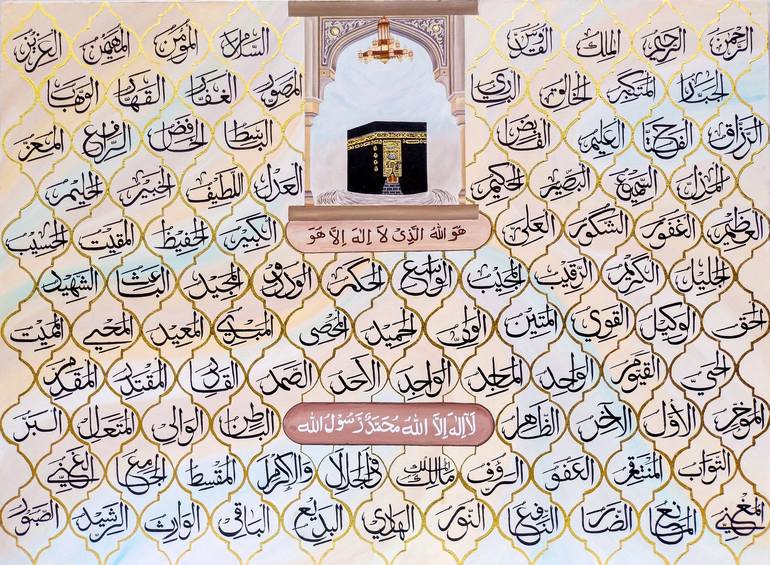 الرحمن الرحيم الملك القدوس السلام المؤمن المهيمن العزيز
الجبار المتكبر الخالق الباري المصور الغفار القهار الوهاب
الرزاق الفتاح العليم القابض الباسط الخافض الرافع المعز
المذل السميع البصير الحكيم العدل اللطيف الخبير الحليم
العظيم الغفور الشكور العلي الكبير الحفيظ المقيت الحسيب
هو الله الذي لا اله الا هو
الجليل الكريم الرقيب المجيب الواسع الحكيم الودود المجيد الباعث الشهيد
الحق الوكيل القوي المتين الولي الحميد المحصي المبدئ المعيد المحيي المميت
الحي القيوم الواجد الماجد الواحد الاحد الصمد القادر المقتدر المقدم
المؤخر الأول الآخر الظاهر الباطن الوالي المتعال البر
لا اله الا الله محمد رسول الله
التواب المنتقم العفو الرؤف مالك الملك ذو الجلال والإكرام المقسط الجامع الغني
المغني المانع الضار النافع النور الهادي البديع الباقي الوارث الرشيد الصبور